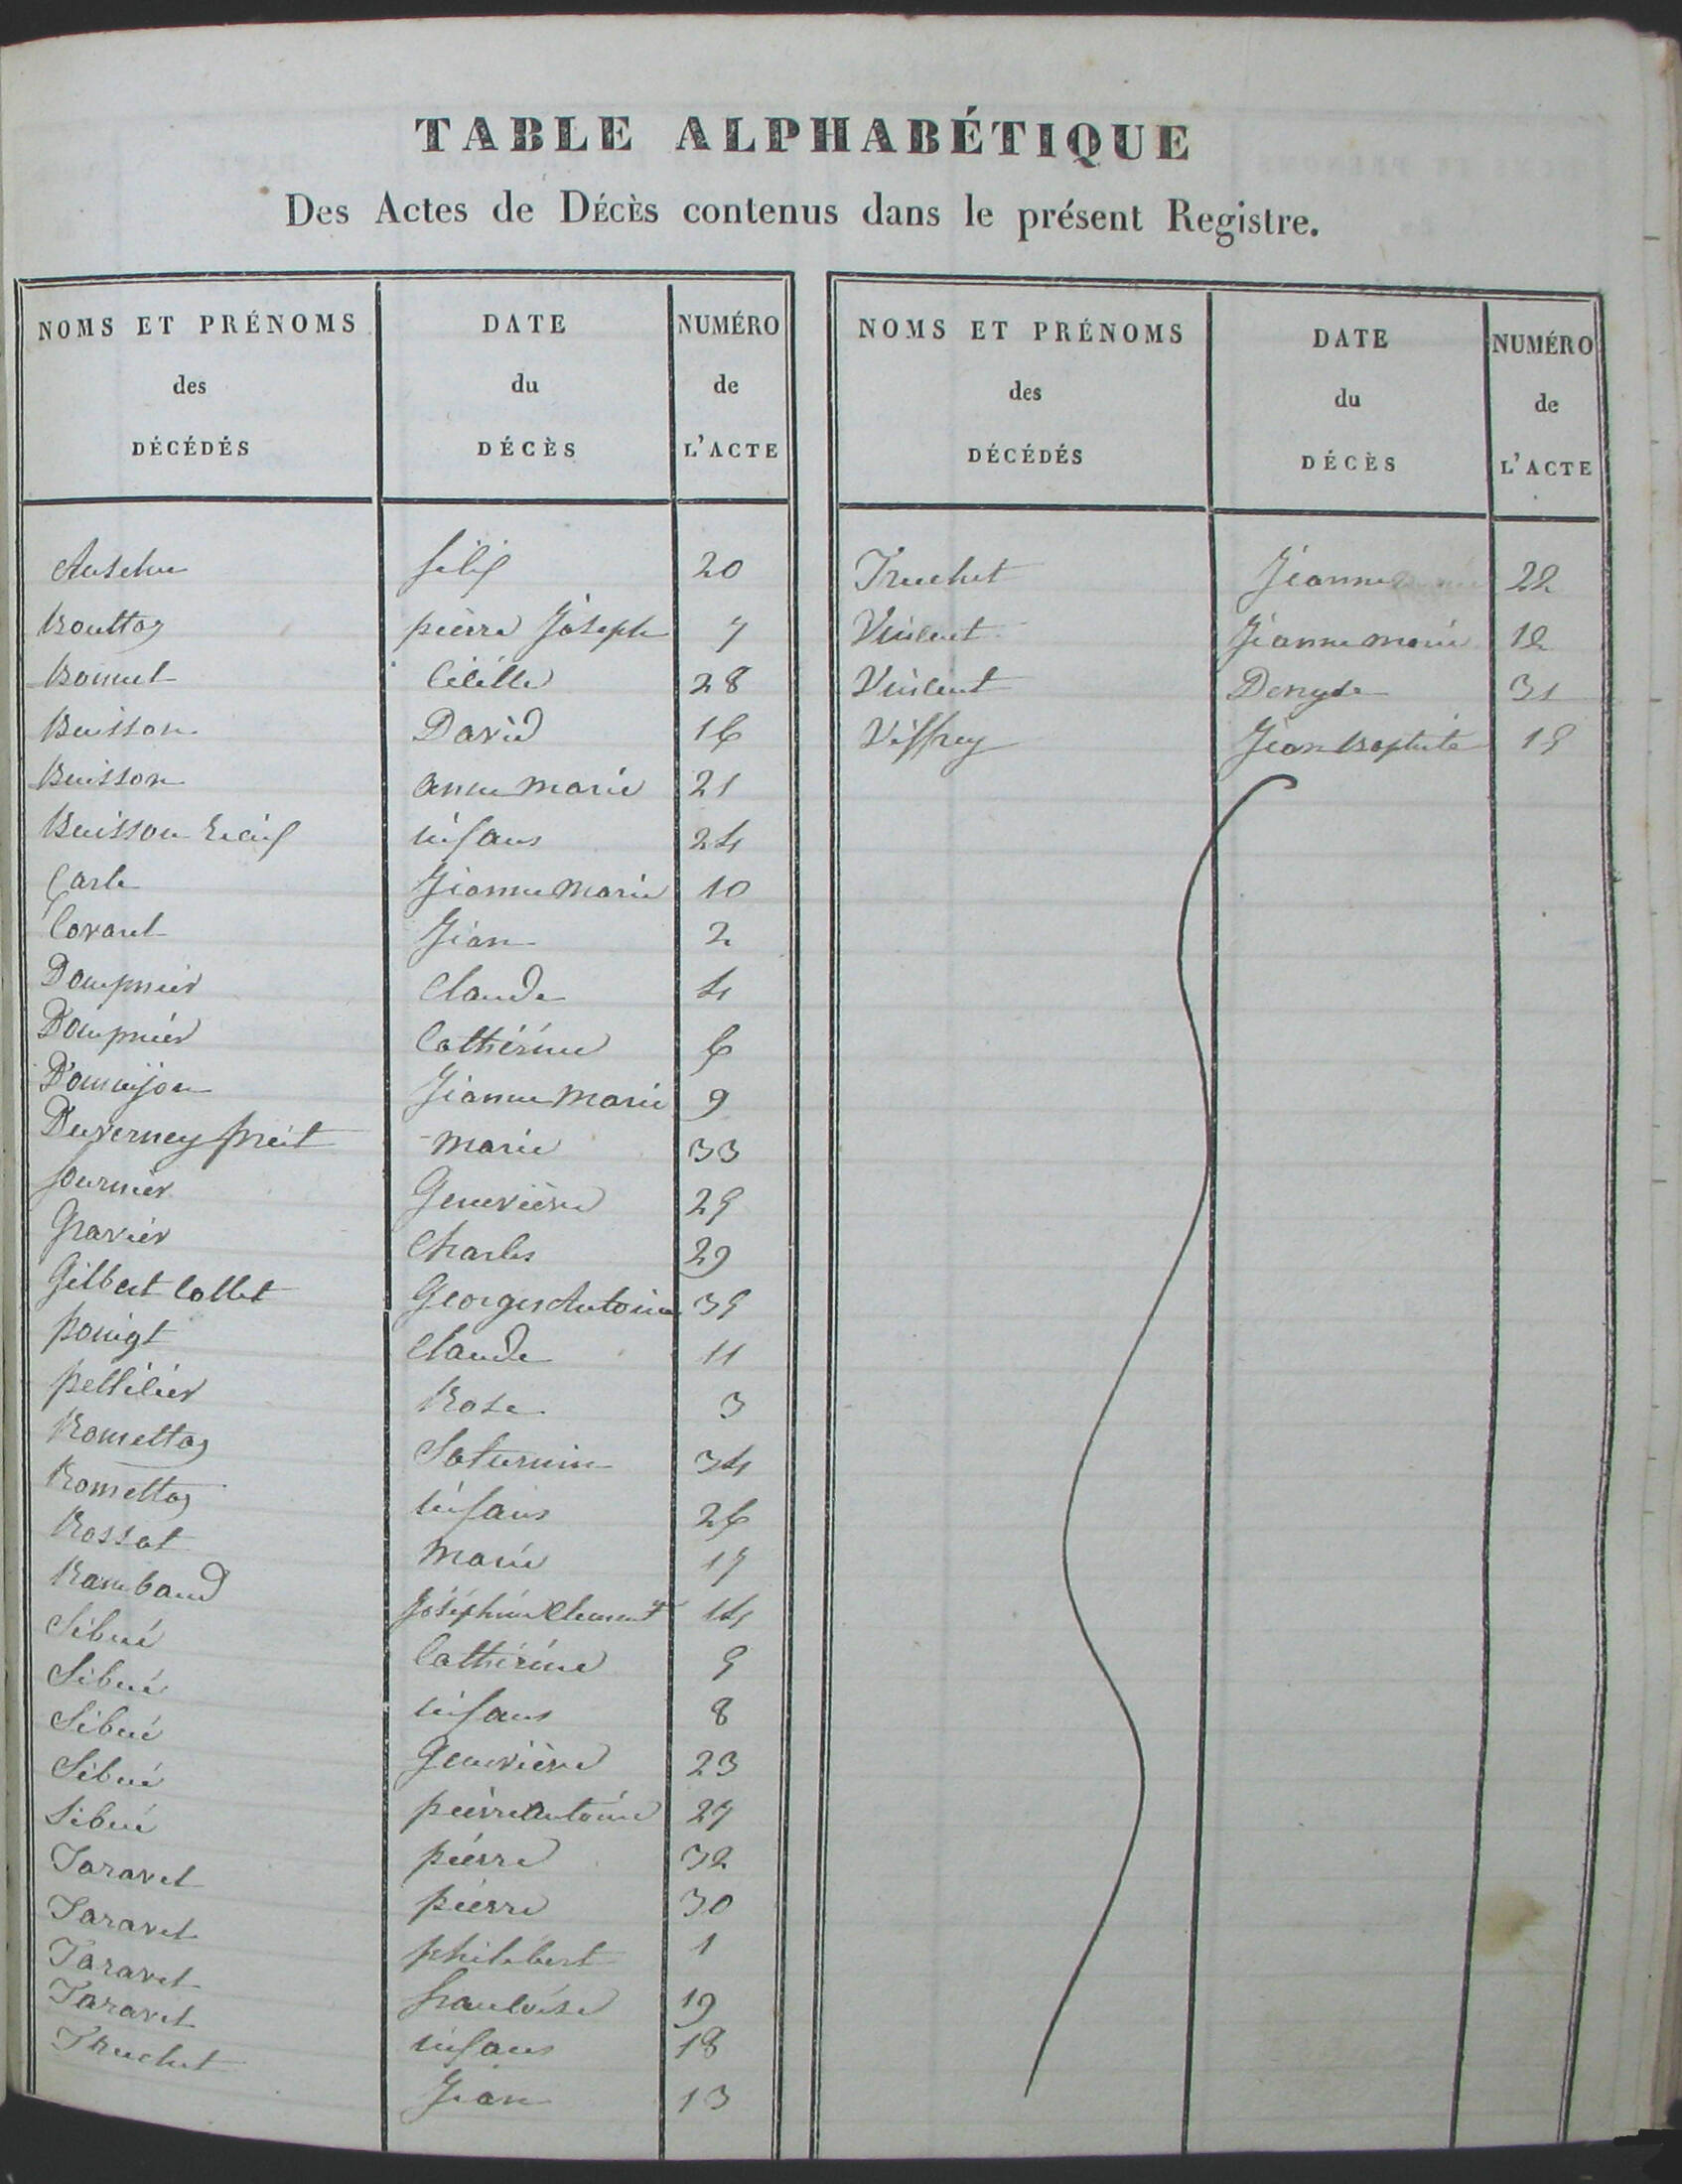 TABLE ALPHABÉTIQUE
Des Actes de DÉCÈS contenus dans le présent Registre.
NOMS ET PRÉNOMS des DÉCÉDÉS | DATE du DÉCÈS | NUMÉRO de L'ACTE
Anselme félix 20
pierre Joseph 7
Cécille 28
Buisson David 16
Buisson anne marie 21
Buisson infans 24
Carle Jeanne Marie 10
Covarel Jean 2
Claude 4
Cathérine 6
Jeanne Marie 9
Duverney marie 33
fournier Geneviève 25
Gravier Charles 29
Gilbert Collet Georges Antoine 35
Claude 11
pellicier Rose 3
Romettaz Saturnin 34
Romettaz infans 26
Rossat Marie 17
Rambaud Joséphine Clement 14
Sibué Cathérine 5
Sibué infans 8
Sibué Geneviève 23
Sibué pierre antoine 27
Sibué pierre 32
Taravel pierre 30
Taravel philibert 1
Taravel françoise 19
Taravel infans 18
Truchet Jean 13
NOMS ET PRÉNOMS des DÉCÉDÉS | DATE du DÉCÈS | NUMÉRO de L'ACTE
Truchet Jeanne 22
Vincent Jeanne marie 12
Vincent Denyse 31
Viffrey Jean Baptiste 15